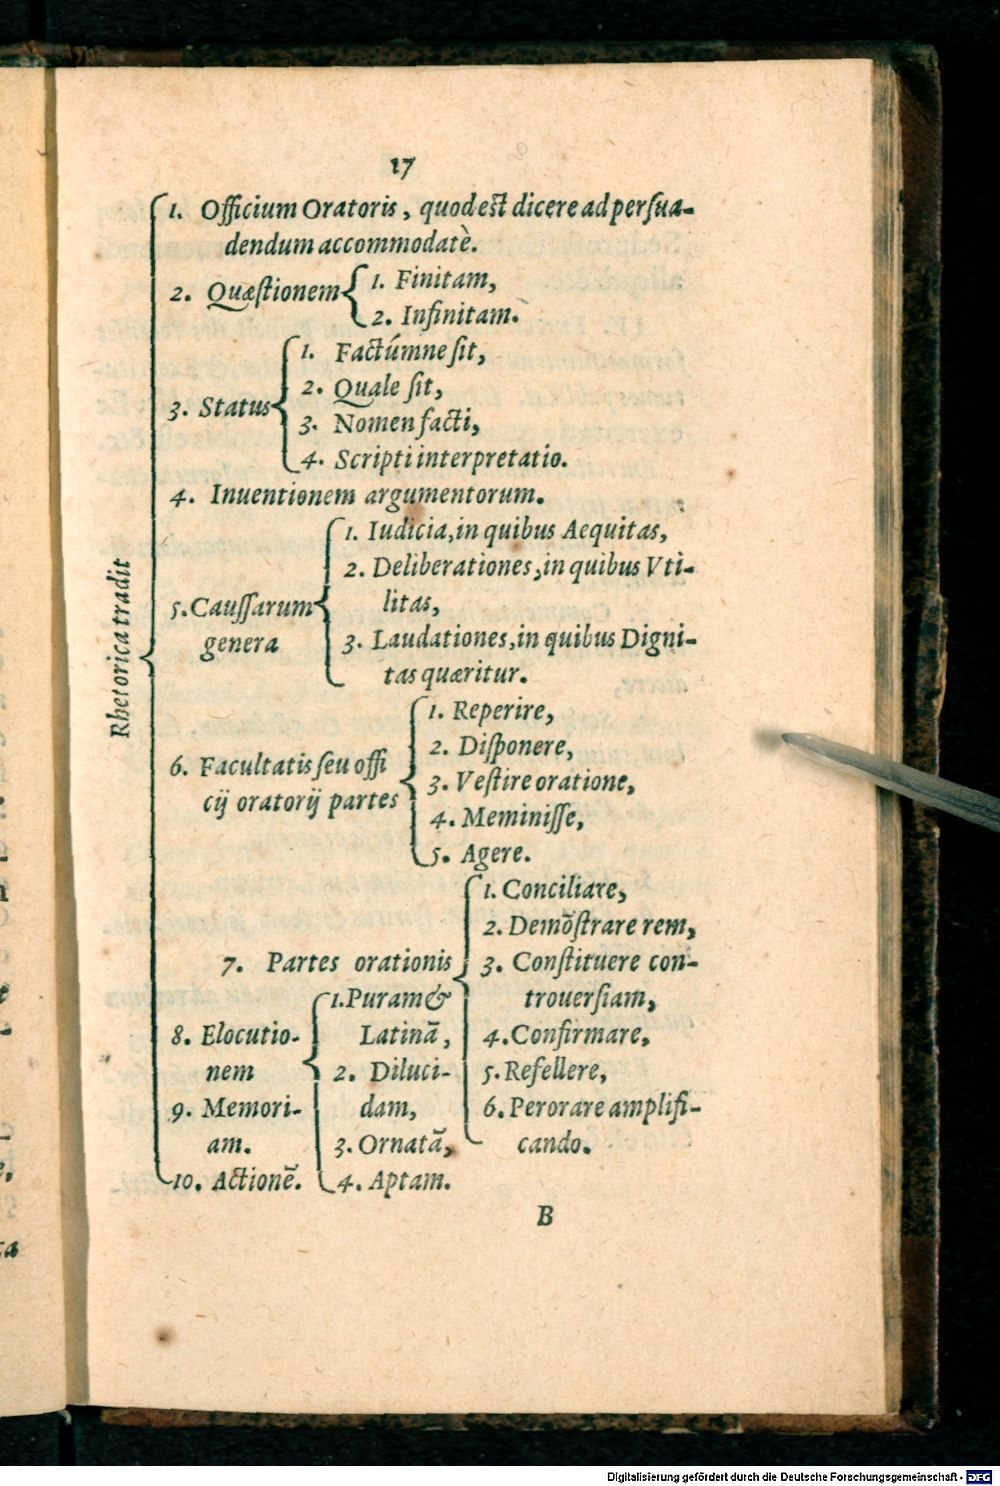 17
Rhetorica tradit
1. Officium Oratoris, quod est dicere ad persua-
dendum accommodatè.
2. Quæstionem
1. Finitam,
2. Infinitam.
3. Status
1. Factúmne sit,
2. Quale sit,
3. Nomen facti,
4. Scripti interpretatio.
4. Inuentionem argumentorum.
5. Caussarum
genera
1. Iudicia, in quibus Aequitas,
2. Deliberationes, in quibus Vti-
litas,
3. Laudationes, in quibus Digni-
tas quæritur.
6. Facultatis seu offi
cij oratorij partes
1. Reperire,
2. Disponere,
3. Vestire oratione,
4. Meminisse,
5. Agere.
7. Partes orationis
1. Conciliare,
2. Demõstrare rem,
3. Constituere con-
trouersiam,
4. Confirmare,
5. Refellere,
6. Perorare amplifi-
cando.
8. Elocutio-
nem
1. Puram &
Latinã,
2. Diluci-
dam,
3. Ornatã,
4. Aptam.
9. Memori-
am.
10. Actionẽ.
B
Digitalisierung gefördert durch die Deutsche Forschungsgemeinschaft - DFG